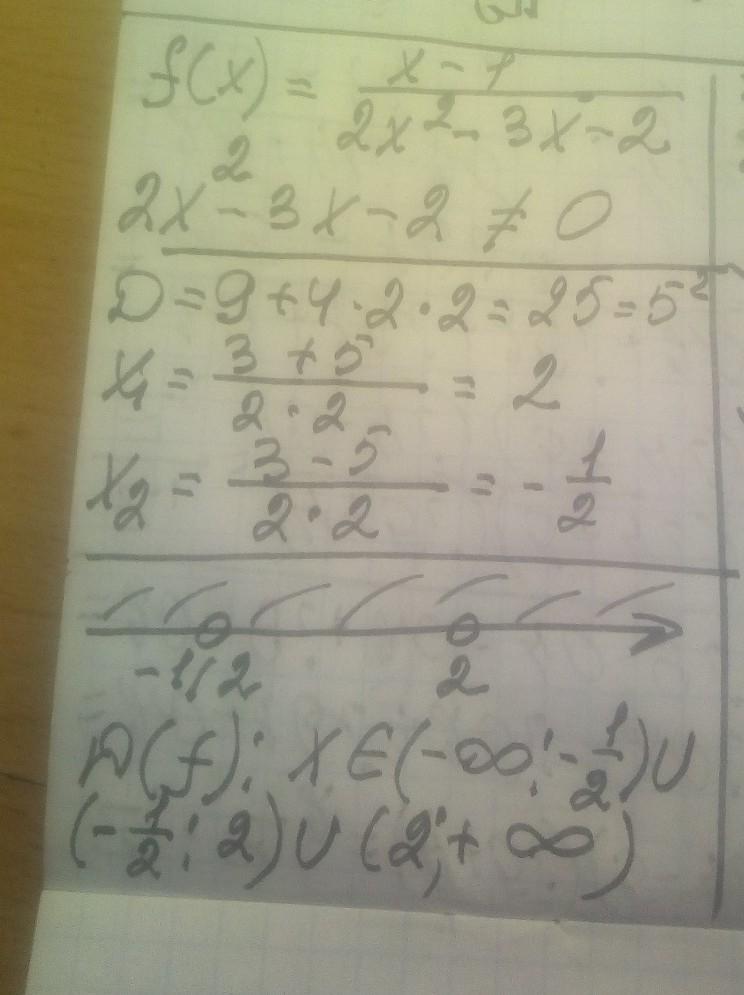 f(x) = (x - 1)/(2x² - 3x - 2)
2x² - 3x - 2 ≠ 0
D = 9 + 4 · 2 · 2 = 25 = 5²
x₁ = (3 + 5)/(2 · 2) = 2
x₂ = (3 - 5)/(2 · 2) = - 1/2
-1/2 2
D(f): x ∈ (-∞; -1/2) ∪
(-1/2; 2) ∪ (2; + ∞)